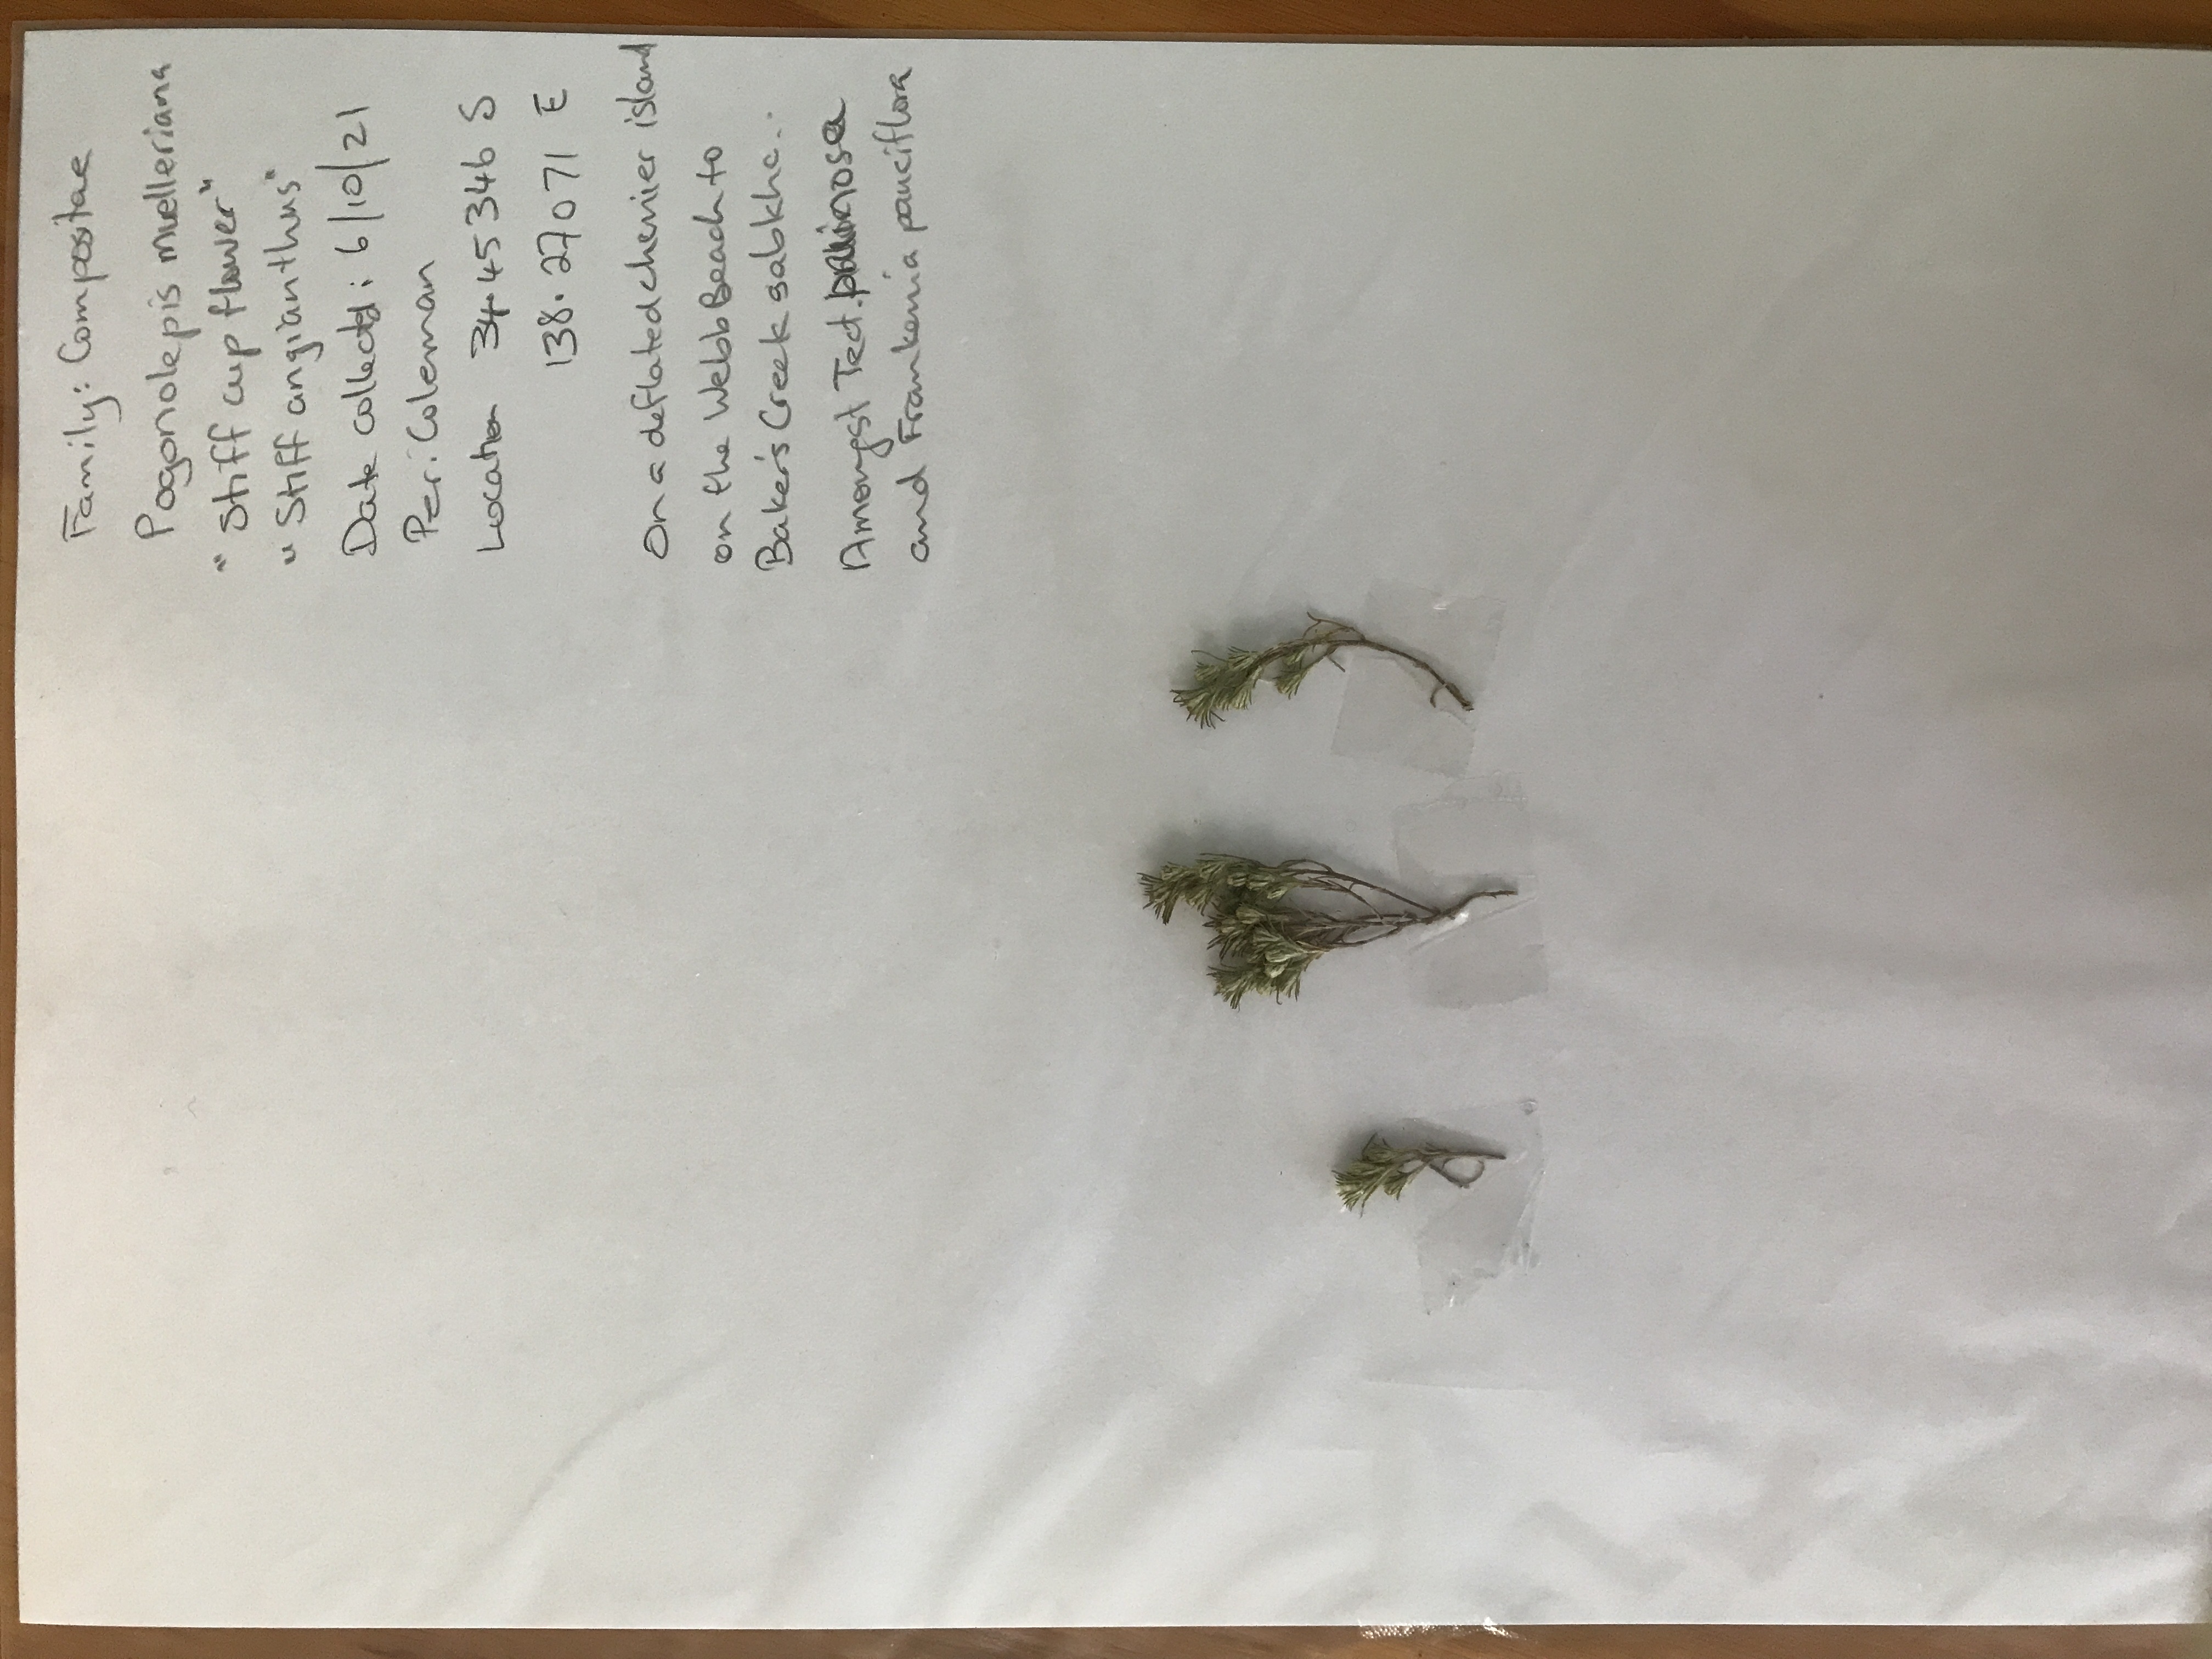 Family: Compositae
Pogonolepis muelleriana
"Stiff cup flower"
"Stiff angianthus"
Date collected: 6/10/21
Peri Coleman
Location 34.45346 S
138.27071 E
On a deflated chenier island
on the Webb Beach to
Baker's Creek sabkha..
Amongst Tect. pruinosa
and Frankenia pauciflora